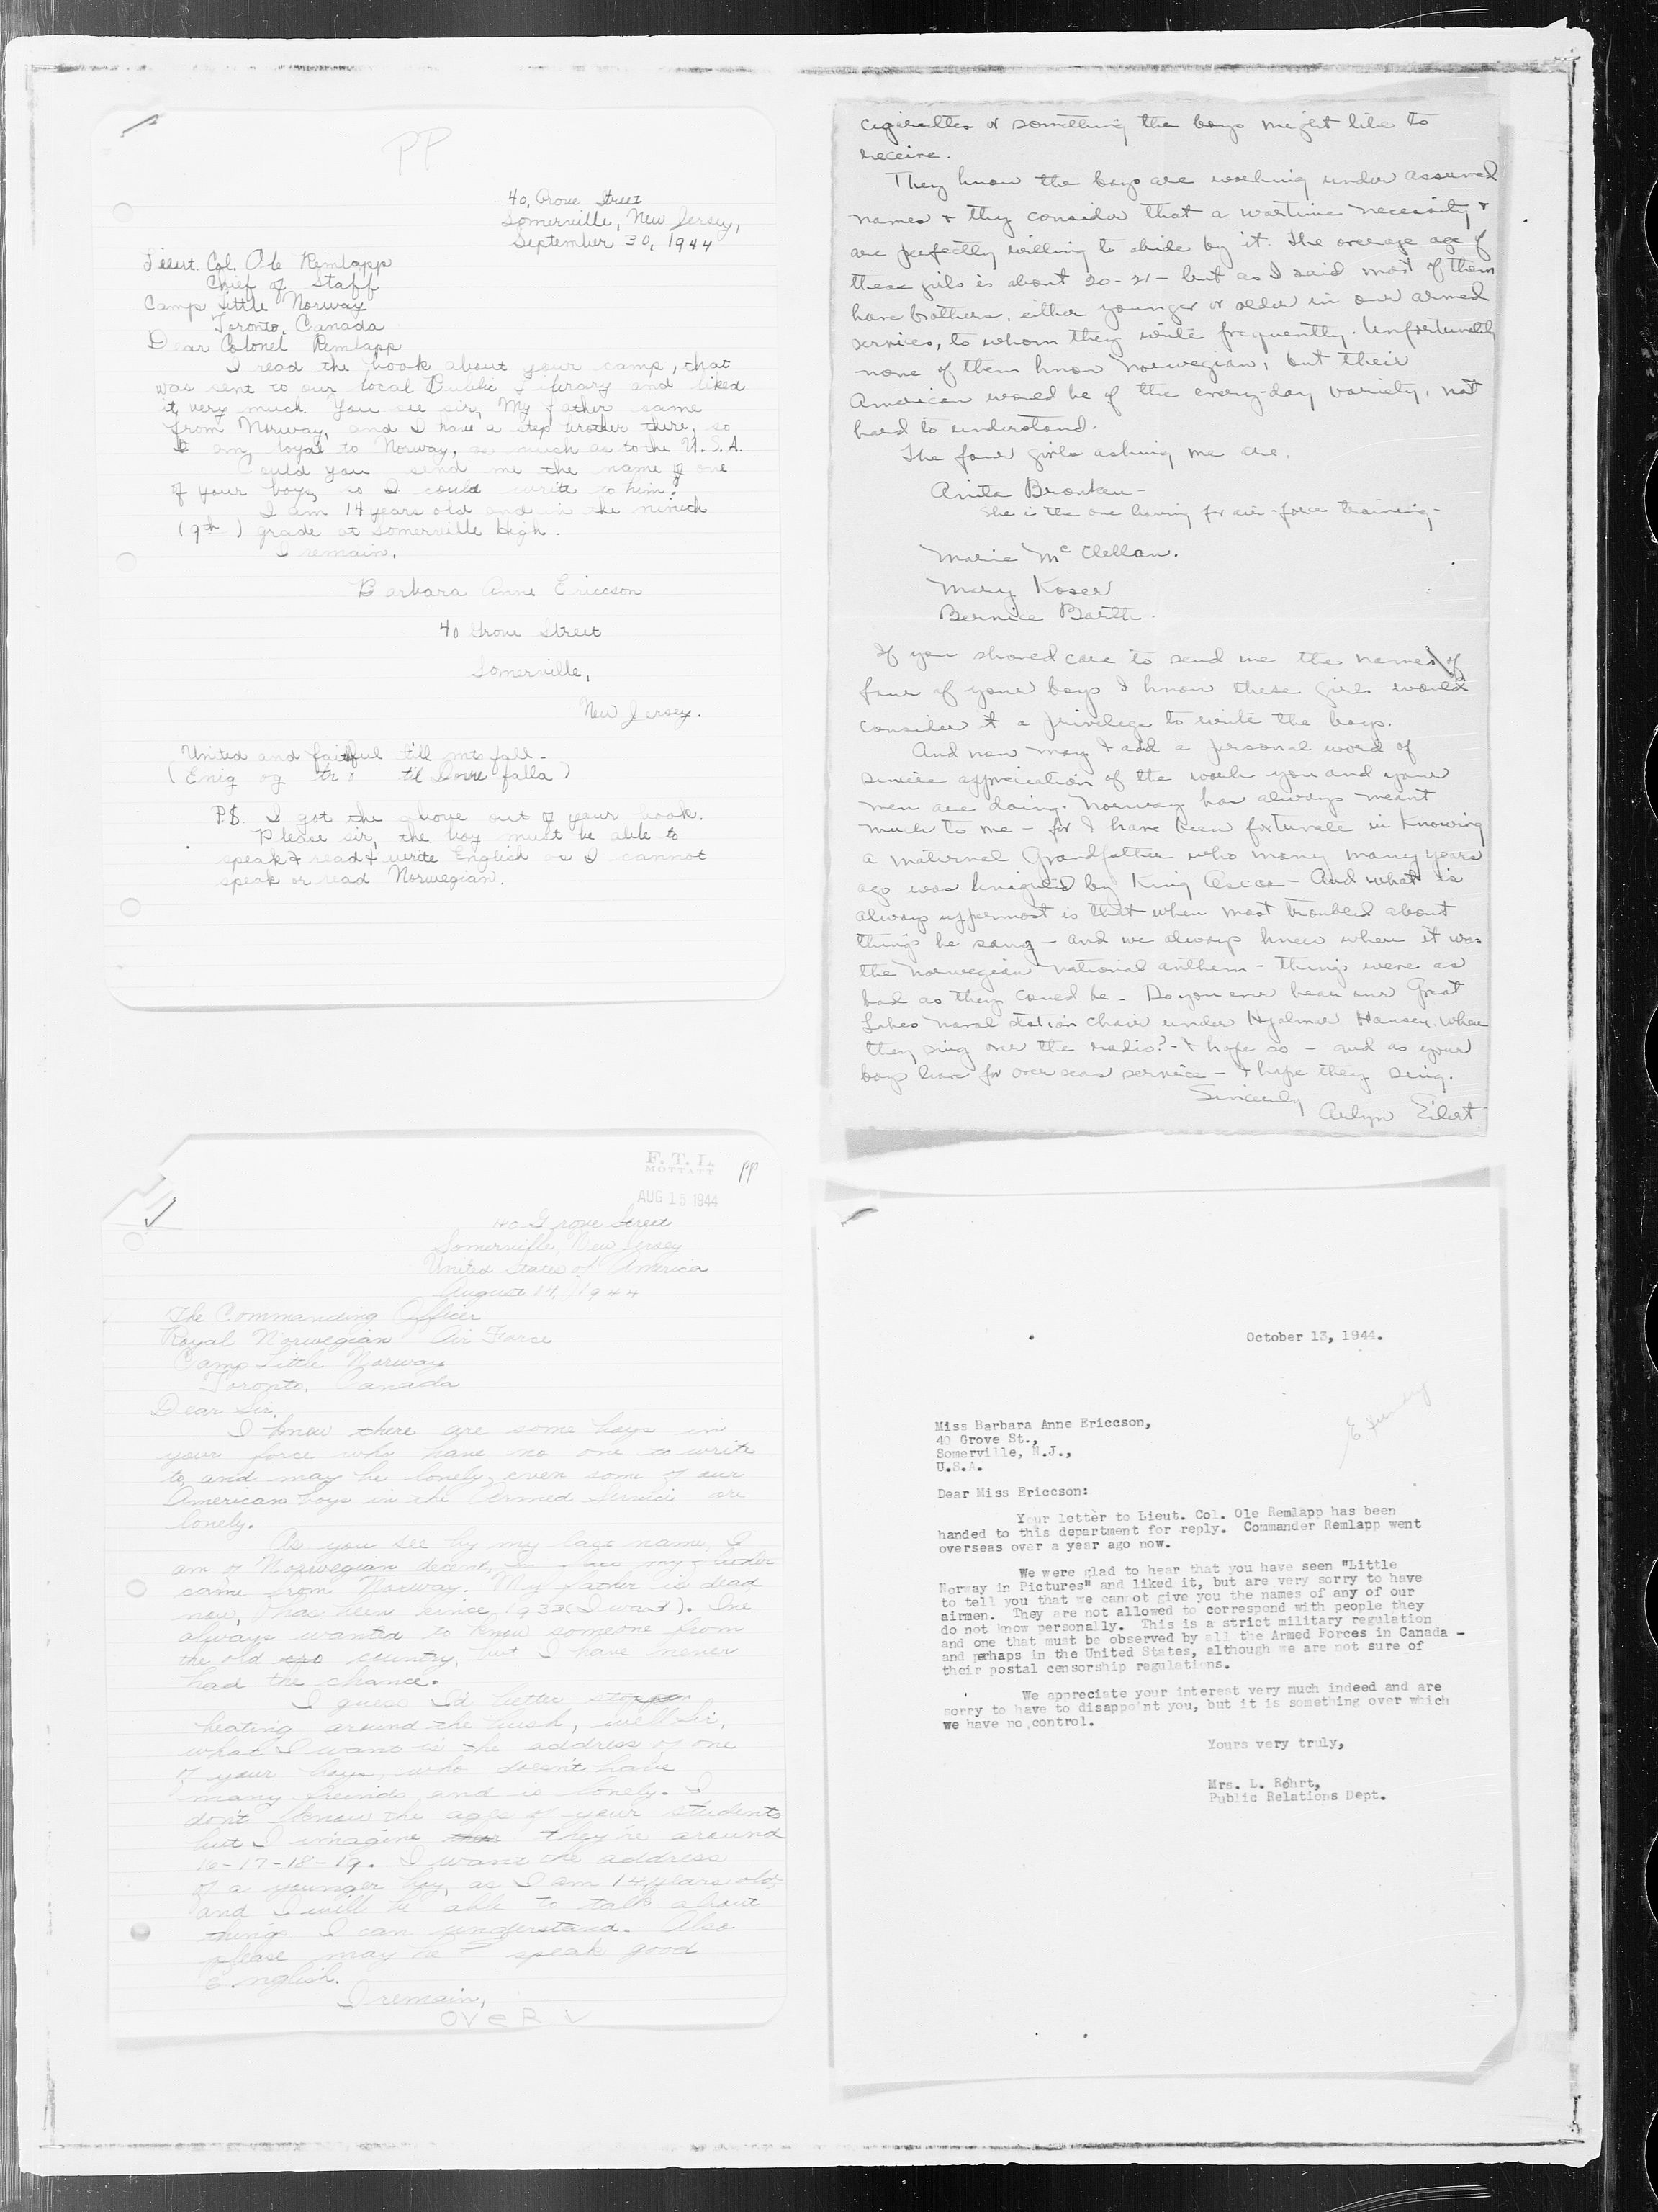 PP
40, Grove Street
Somerville, New Jersey,
September 30, 1944
Lieut. Col. Ole Remlapp
Chief of Staff
Camp Little Norway
Toronto, Canada
Dear Colonel Remlapp
I read the book about your camp, that
was sent to our local Public Library and liked
it very much. You see sir, My father came
from Norway, and I have a step brother there, so
I am loyal to Norway, as much as to the U.S.A.
Could you send me the name of one
of your boys so I could write to him?
I am 14 years old and in the nineth
(9th) grade at Somerville high.
I remain,
Barbara Anne Ericcson
40 Grove Street
Somerville,
New Jersey.
United and faithful till mts fall.
(Enig og tro til Dovre falla)
P.S. I got the above out of your book.
Please sir, the boy must be able to
speak & read & write English as I cannot
speak or read Norwegian.
cigarettes or something the boys might like to
receive.
They know the boys are working under assumed
names & they consider that a wartime necessity &
are perfectly willing to abide by it. The average age of
these girls is about 20-21 - but as I said most of them
have brothers, either younger or older in our armed
services, to whom they write frequently. Unfortunately
none of them know Norwegian, but their
American would be of the every-day variety, not
hard to understand.
The four girls asking me are.
Anita Bronken -
She is the one having for air-force training -
Marie McClellan.
Mary Koser
Bernice Barth.
If you should care to send me the names of
four of your boys I know these girls would
consider it a privilege to write the boys.
And now may I add a personal word of
sincere appreciation of the work you and your
men are doing. Norway has always meant
much to me - for I have been fortunate in knowing
a maternal Grandfather who many many years
ago was knighted by King Oscar - And what is
always uppermost is that when most troubled about
things he sang - and we always knew when it was
the Norwegian national anthem - things were as
bad as they could be - Do you ever hear our Great
Lakes naval station choir under Hjalmar Hansen. when
they sing over the radio? - I hope so - and as your
boys leave for overseas service - I hope they sing.
Sincerely
Arlyn Eilert
F. T. L.
MOTTATT
PP
AUG 15 1944
40 Grove Street
Somerville, New Jersey
United States of America
August 14, 1944
The Commanding Officer
Royal Norwegian Air Force
Camp Little Norway
Toronto, Canada
Dear Sir,
I know there are some boys in
your force who have no one to write
to and may be lonely, even some of our
American boys in the Armed Service are
lonely.
As you see by my last name, I
am of Norwegian decent, my father
came from Norway. My father is dead
now, has been since 1933 (I was 3). Ive
always wanted to know someone from
the old country, but I have never
had the chance.
I guess I'd better stop
beating around the bush, well sir,
what I want is the address of one
of your boys, who doesn't have
many freinds and is lonely. I
don't know the ages of your students
but I imagine they're around
16-17-18-19. I want the address
of a younger boy, as I am 14 years old
and I will be able to talk about
things I can understand. Also
please may he speak good
English.
I remain,
OVER
October 13, 1944.
Miss Barbara Anne Ericcson,
40 Grove St.,
Somerville, N.J.,
U.S.A.
Dear Miss Ericcson:
Your letter to Lieut. Col. Ole Remlapp has been
handed to this department for reply. Commander Remlapp went
overseas over a year ago now.
We were glad to hear that you have seen "Little
Norway in Pictures" and liked it, but are very sorry to have
to tell you that we cannot give you the names of any of our
airmen. They are not allowed to correspond with people they
do not know personally. This is a strict military regulation
and one that must be observed by all the Armed Forces in Canada -
and perhaps in the United States, although we are not sure of
their postal censorship regulations.
We appreciate your interest very much indeed and are
sorry to have to disappoint you, but it is something over which
we have no control.
Yours very truly,
Mrs. L. Rohrt,
Public Relations Dept.